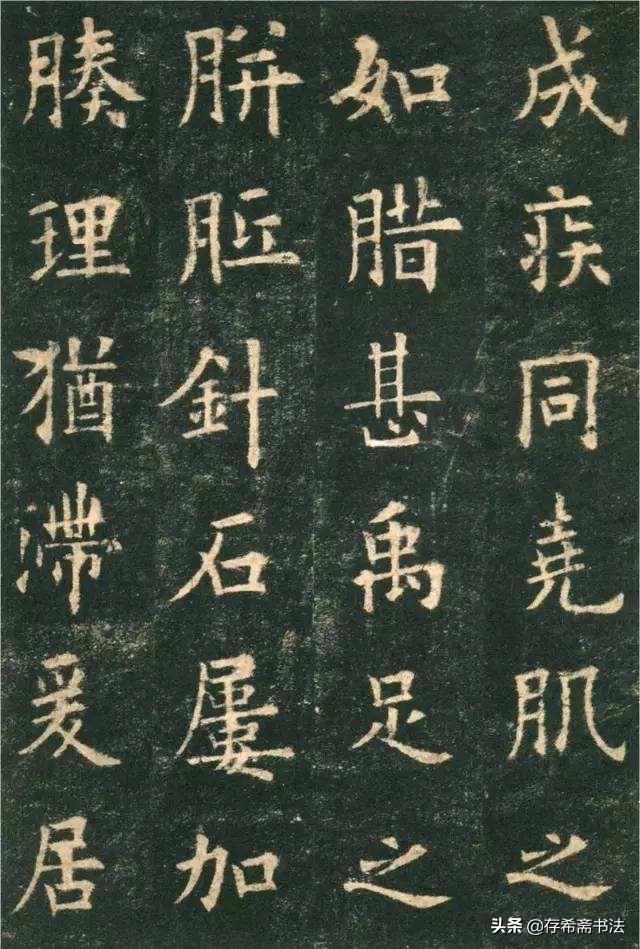 成疾同堯肌之
如腊甚禹足之
胼胝針石屢加
腠理猶滯爰居
头条 @存希斋书法